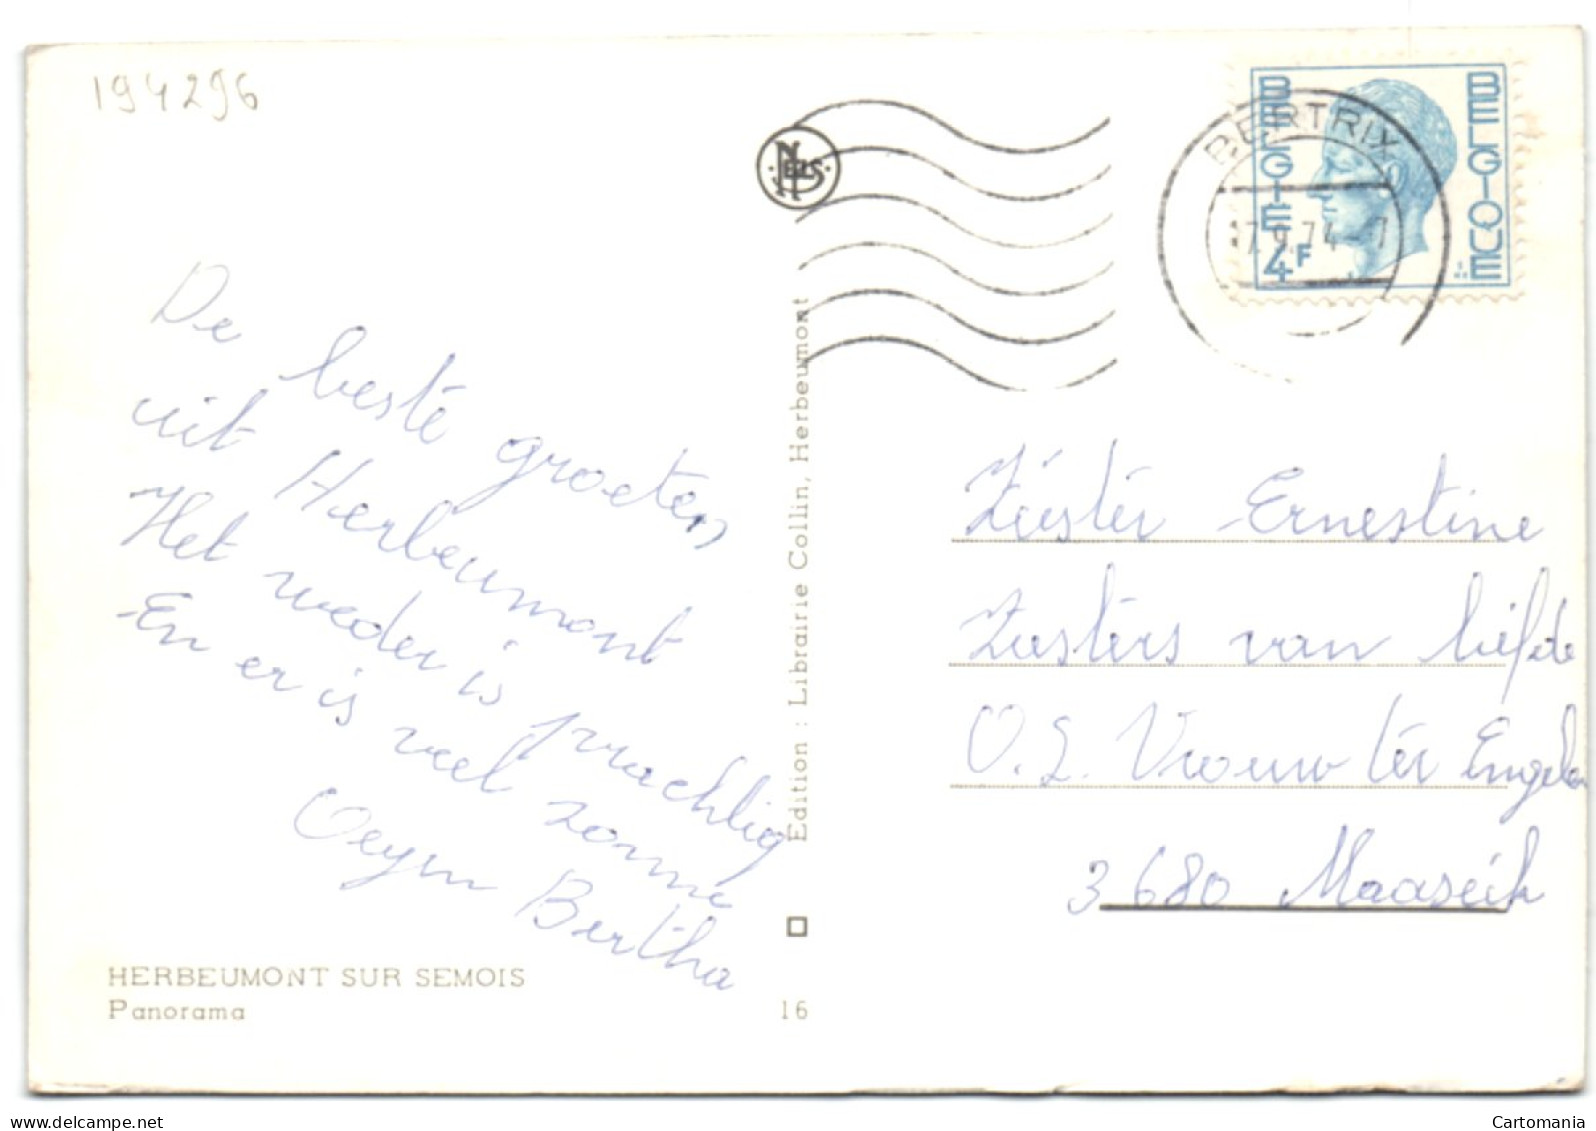 194296
NELS
BELGIE
BELGIQUE
4F
BERTRIX
De beste groeten
uit Herbeumont
Het weder is prachtig
En er is veel zonne
Bertha
HERBEUMONT SUR SEMOIS
Panorama
Edition : Librairie Collin, Herbeumont
16
Zuster Ernestine
Zusters van liefde
O. L. Vrouw ter Engelen
3680 Maaseik
Cartomania